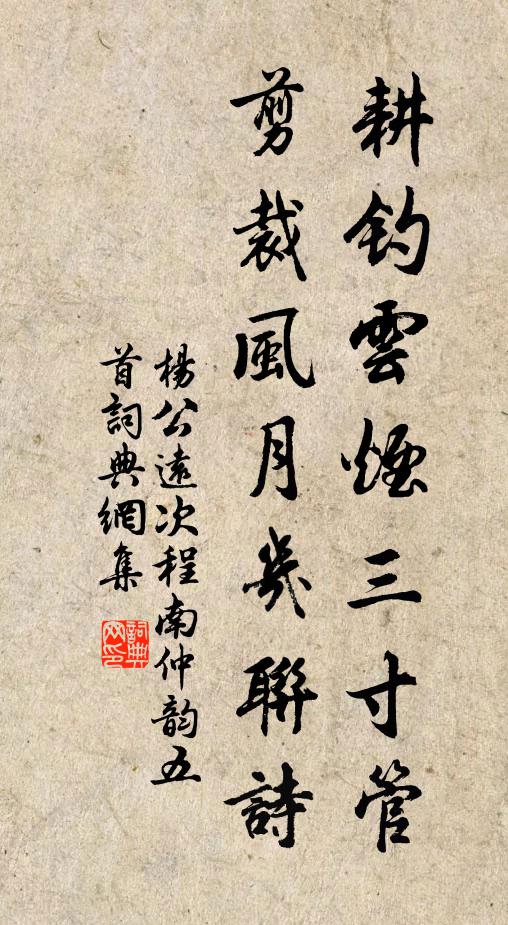 耕釣雲煙三寸管
剪裁風月幾聯詩
楊公遠次程南仲韵五
首詞典網集
詞典
网印